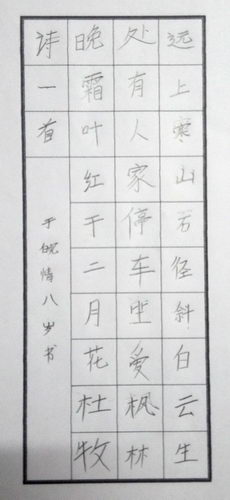 远上寒山石径斜白云生
处有人家停车坐爱枫林
晚霜叶红于二月花杜牧
诗一首
于皖情八岁书